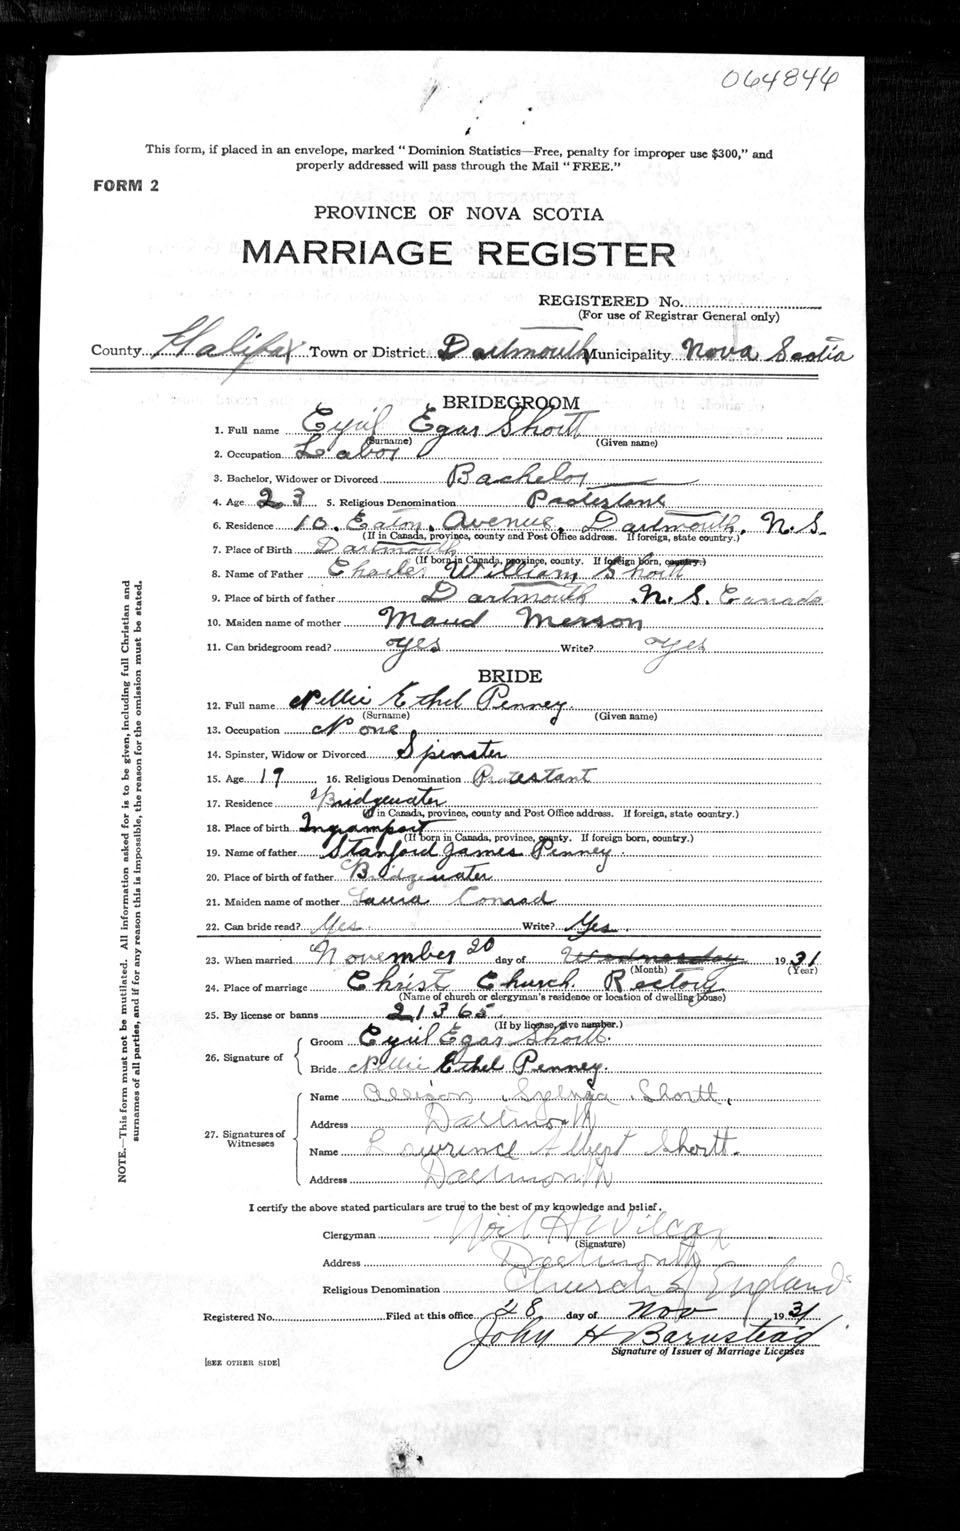 064846
This form, if placed in an envelope, marked "Dominion Statistics—Free, penalty for improper use $300," and
properly addressed will pass through the Mail "FREE."
FORM 2
PROVINCE OF NOVA SCOTIA
MARRIAGE REGISTER
REGISTERED No.
(For use of Registrar General only)
County Halifax Town or District Dartmouth Municipality Nova Scotia
BRIDEGROOM
1. Full name Cyril Egar Shortt
(Surname) (Given name)
2. Occupation Labor
3. Bachelor, Widower or Divorced Bachelor
4. Age 23 5. Religious Denomination Protestant
6. Residence 10. Eaton. Avenue. Dartmouth. N.S.
(If in Canada, province, county and Post Office address. If foreign, state country.)
7. Place of Birth Dartmouth
(If born in Canada, province, county. If foreign born, country.)
8. Name of Father Charles William Shortt
9. Place of birth of father Dartmouth N.S. Canada
10. Maiden name of mother Maud Merson
11. Can bridegroom read? yes Write? yes
BRIDE
12. Full name Nellie Ethel Penney
(Surname) (Given name)
13. Occupation None
14. Spinster, Widow or Divorced Spinster
15. Age 19 16. Religious Denomination Protestant
17. Residence Bridgewater
(If in Canada, province, county and Post Office address. If foreign, state country.)
18. Place of birth Ingramport
(If born in Canada, province, county. If foreign born, country.)
19. Name of father Stanford James Penney
20. Place of birth of father Bridgewater
21. Maiden name of mother Laura Conrad
22. Can bride read? Yes Write? Yes.
23. When married November 20 day of Wednesday 1931
(Month) (Year)
24. Place of marriage Christ Church Rectory
(Name of church or clergyman's residence or location of dwelling house)
25. By license or banns 21365
(If by license, give number.)
26. Signature of
Groom Cyril Egar Shortt.
Bride Nellie Ethel Penney.
27. Signatures of Witnesses
Name Allison Shortt.
Address Dartmouth
Name Lawrence Albert Shortt.
Address Dartmouth
I certify the above stated particulars are true to the best of my knowledge and belief.
Clergyman H Wilcox
(Signature)
Address Dartmouth
Religious Denomination Church of England
Registered No. Filed at this office 28 day of Nov 1931
John H Barnstead
Signature of Issuer of Marriage Licenses
[SEE OTHER SIDE]
NOTE.—This form must not be mutilated. All information asked for is to be given, including full Christian and
surnames of all parties, and if for any reason this is impossible, the reason for the omission must be stated.